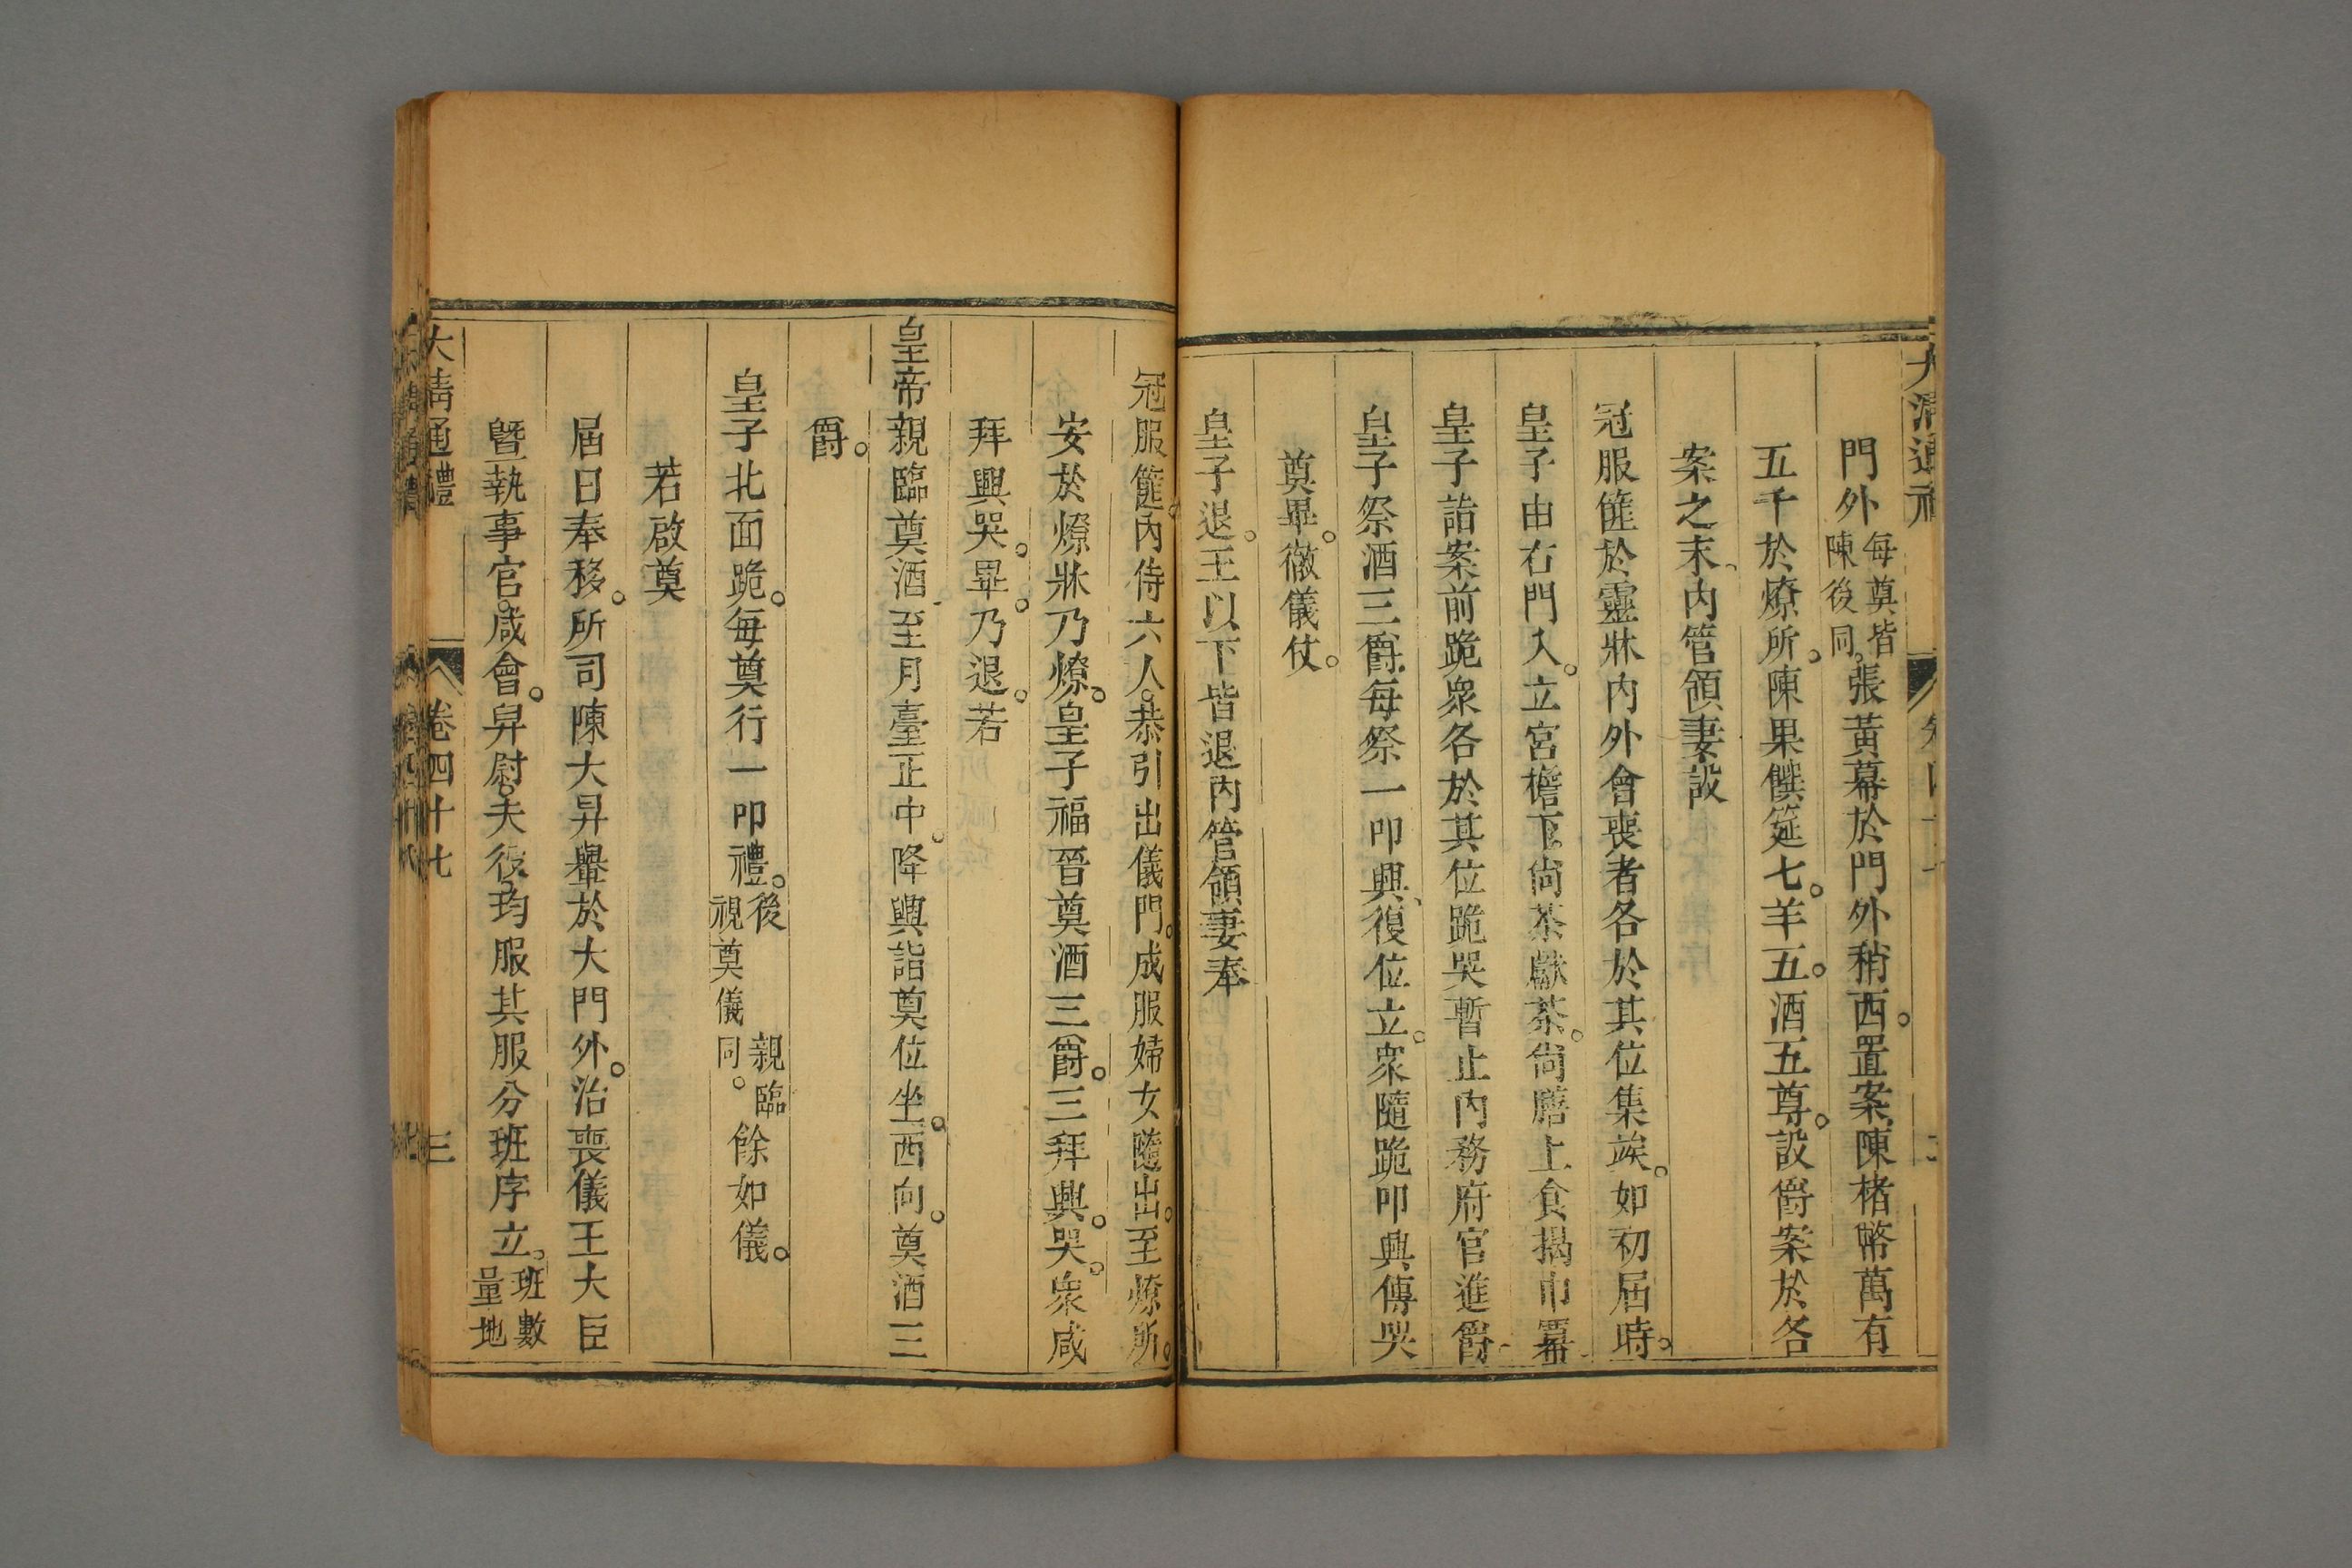 門外每奠皆陳後同。張黃幕於門外稍西。置案陳楮幣萬有
五千於燎所。陳果饌筵七。羊五。酒五尊。設爵案於各
案之末、內管領妻設
冠服䈰於靈牀內外會喪者各於其位集竢。如初屆時。
皇子由右門入。立宮檐下尙茶獻茶。尙膳上食揭巾羃
皇子詣案前跪衆各於其位跪哭暫止內務府官進爵
皇子祭酒三爵每祭一叩興、復位立。衆隨跪叩興傳哭
奠畢。徹儀仗。
皇子退。王以下皆退內管領妻奉
冠服䈰。內侍六人。恭引出儀門。成服婦女隨出。至燎所。
安於燎牀乃燎。皇子福晉奠酒三爵。三拜興。哭。衆咸
拜興哭。畢。乃退。若
皇帝親臨奠酒至月臺正中。降輿詣奠位坐。西向。奠酒三
爵。
皇子北面跪。每奠行一叩禮。後親臨視奠儀同。餘如儀。
若啟奠
屆日奉移。所司陳大昇轝於大門外。治喪儀王大臣
曁執事官。咸會。舁尉。夫役。均服其服分班序立。班數量地
大清通禮 卷四十七 三